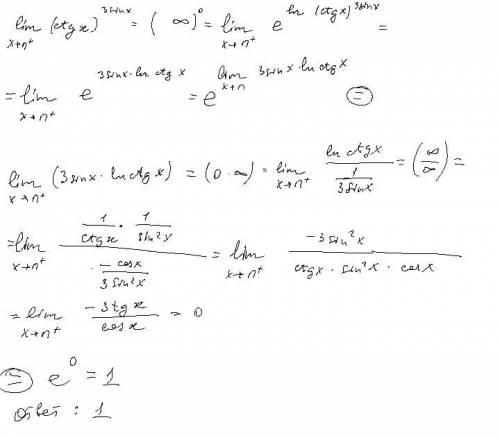 lim x→π⁺ (ctg x)^(3 sin x) = (∞)⁰ = lim x→π⁺ e^(ln (ctg x)^(3 sin x)) =
= lim x→π⁺ e^(3 sin x · ln ctg x) = e^(lim x→π 3 sin x · ln ctg x) ⊜
lim x→π⁺ (3 sin x · ln ctg x) = (0·∞) = lim x→π⁺ (ln ctg x)/(1/(3 sin x)) = (∞/∞) =
= lim x→π⁺ (1/(ctg x) · 1/(sin² x))/(· (-cos x)/(3 sin² x)) = lim x→π⁺ (-3 sin² x)/(ctg x · sin² x · cos x)
= lim x→π⁺ (-3 tg x)/(cos x) = 0
⊜ e⁰ = 1
ответ : 1